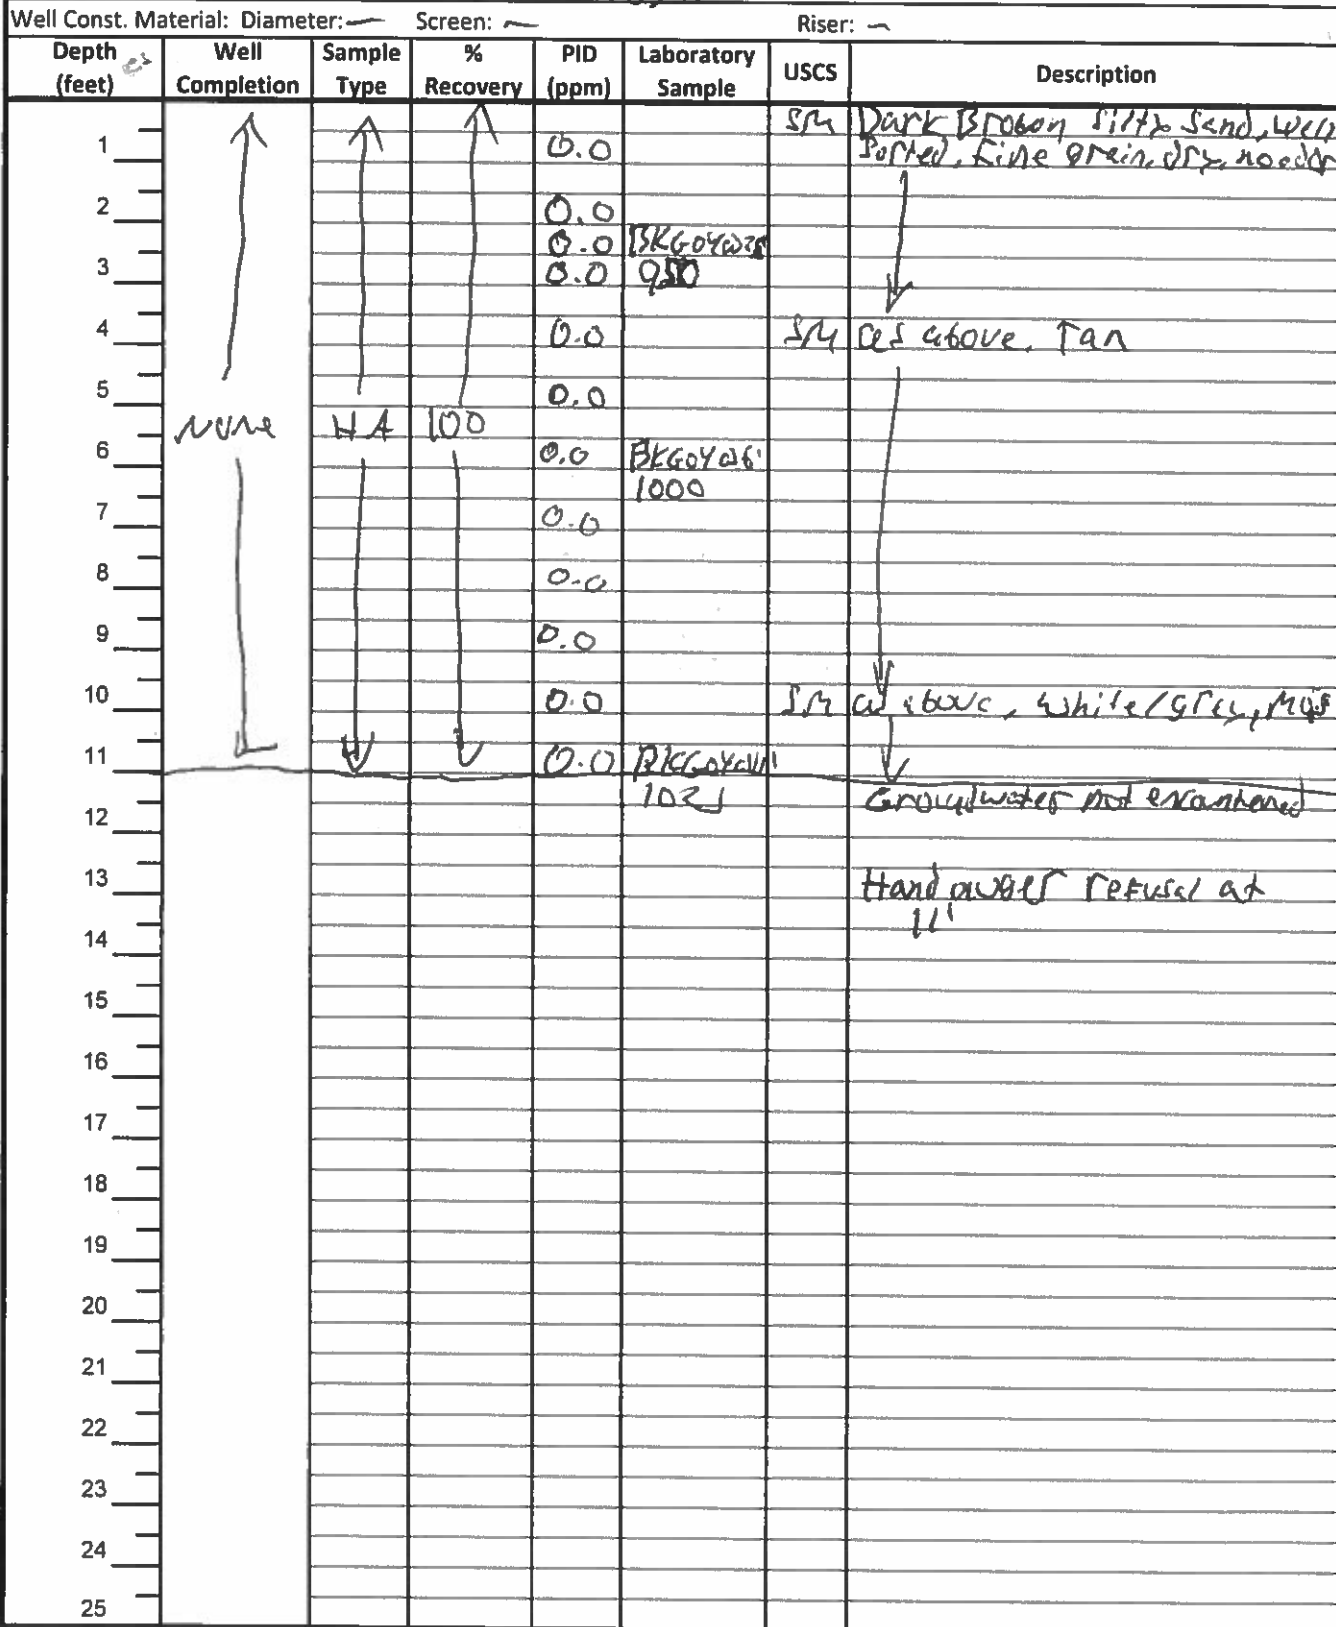 Well Const. Material: Diameter: — Screen: — Riser: —
Depth (feet) Well Completion Sample Type % Recovery PID (ppm) Laboratory Sample USCS Description
SM Dark Brown Silty Sand, well
1 0.0 sorted, fine grain, dry, no odor
2 0.0
0.0
3 0.0
4 0.0 SM as above, Tan
5 0.0
None HA 100
6 0.0 BKG04@6'
1000
7 0.0
8 0.0
9 0.0
10 0.0 SM as above, white/grey,
11 0.0 BKG04@11'
Groundwater not encountered
12
13 Hand auger refusal at
11'
14
15
16
17
18
19
20
21
22
23
24
25